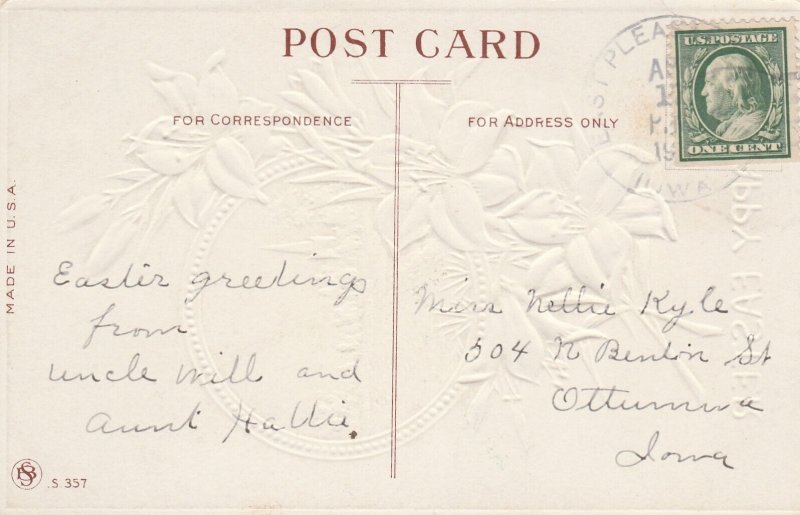 POST CARD
FOR CORRESPONDENCE
FOR ADDRESS ONLY
U.S. POSTAGE
ONE CENT
IOWA
MADE IN U.S.A.
Easter greetings
from
Uncle Will and
Aunt Hallie.
Miss Nellie Kyle
504 N Benton St
Ottumwa
Iowa
HAPPY EASTER
S 357